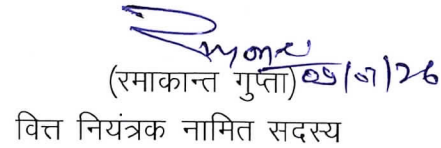 (रमाकान्त गुप्ता) 05/01/26
वित्त नियंत्रक नामित सदस्य